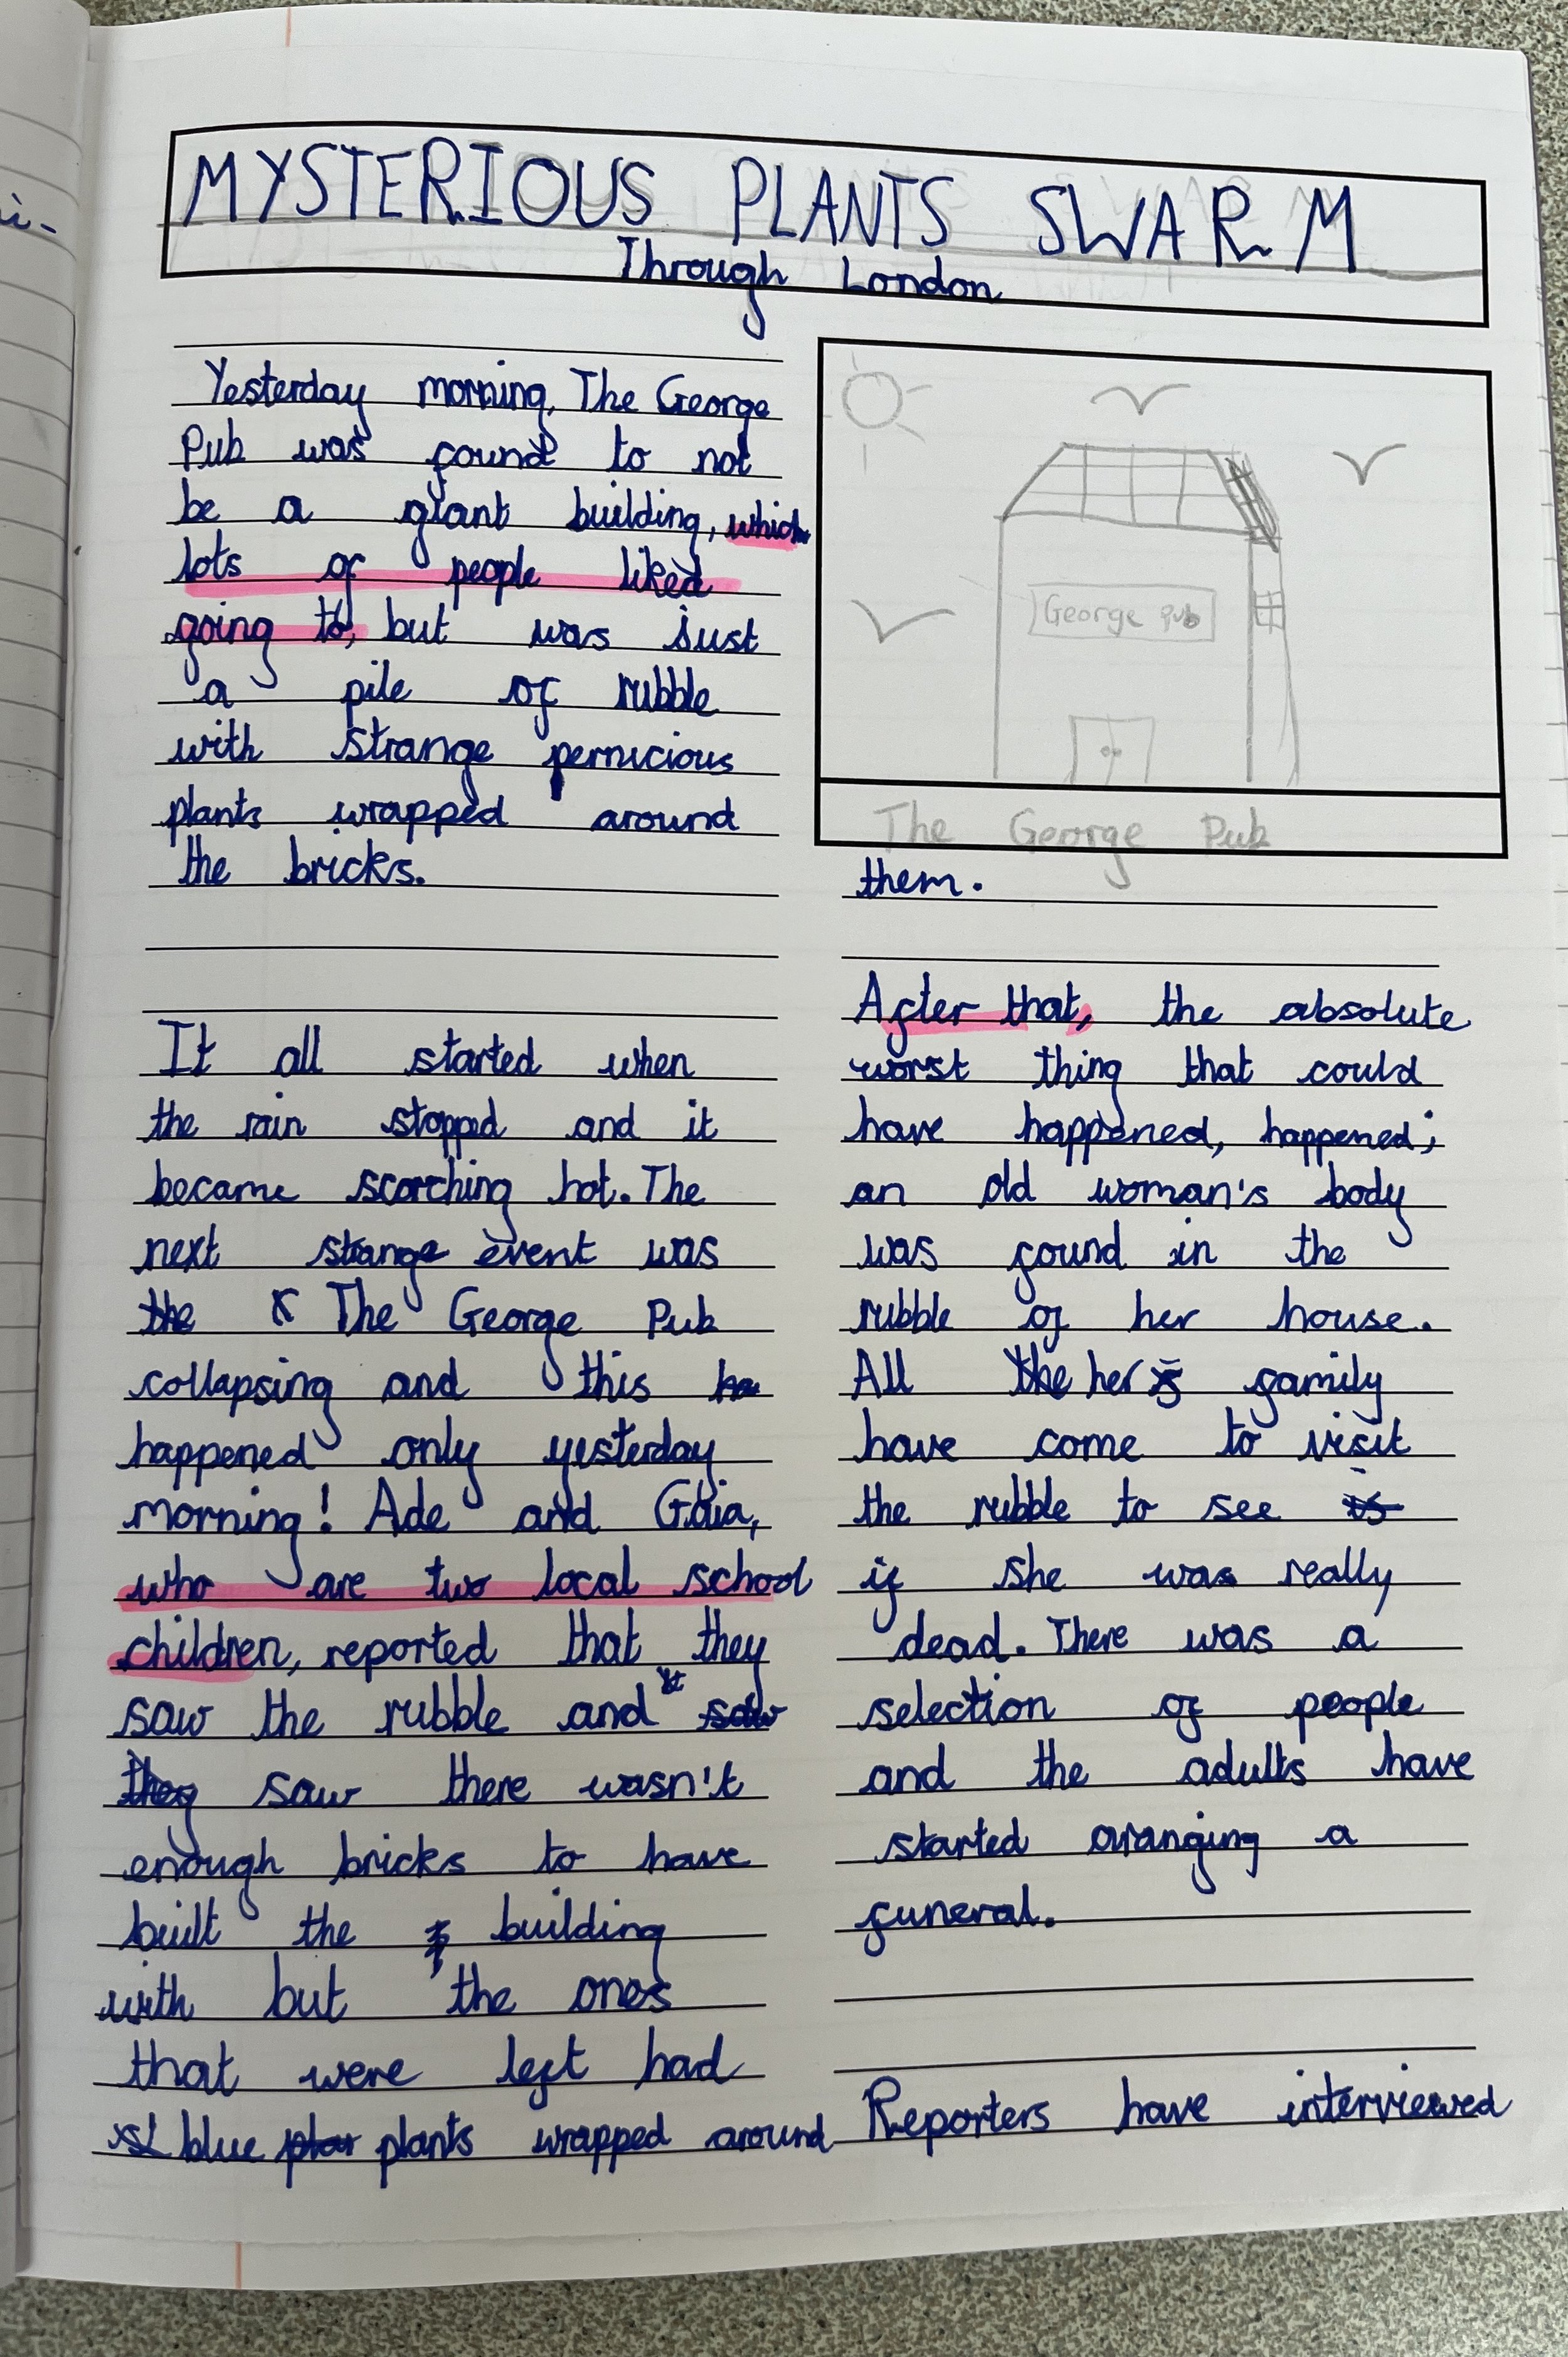 MYSTERIOUS PLANTS SWARM
Through London
Yesterday morning, The George
Pub was found to not
be a giant building, which
lots of people liked
going to, but was just
a pile of rubble
with strange pernicious
plants wrapped around
the bricks.
It all started when
the rain stopped and it
became scorching hot. The
next strange event was
the The George Pub
collapsing and this ha
happened only yesterday
morning! Ade and Gaia,
who are two local school
children, reported that they
saw the rubble and saw
they saw there wasn't
enough bricks to have
built the building
with but the ones
that were left had
st blue plan plants wrapped around
George pub
The George Pub
them.
After that, the absolute
worst thing that could
have happened, happened;
an old woman's body
was found in the
rubble of her house.
All the her family
have come to visit
the rubble to see is
if she was really
dead. There was a
selection of people
and the adults have
started aranging a
funeral.
Reporters have interviewed